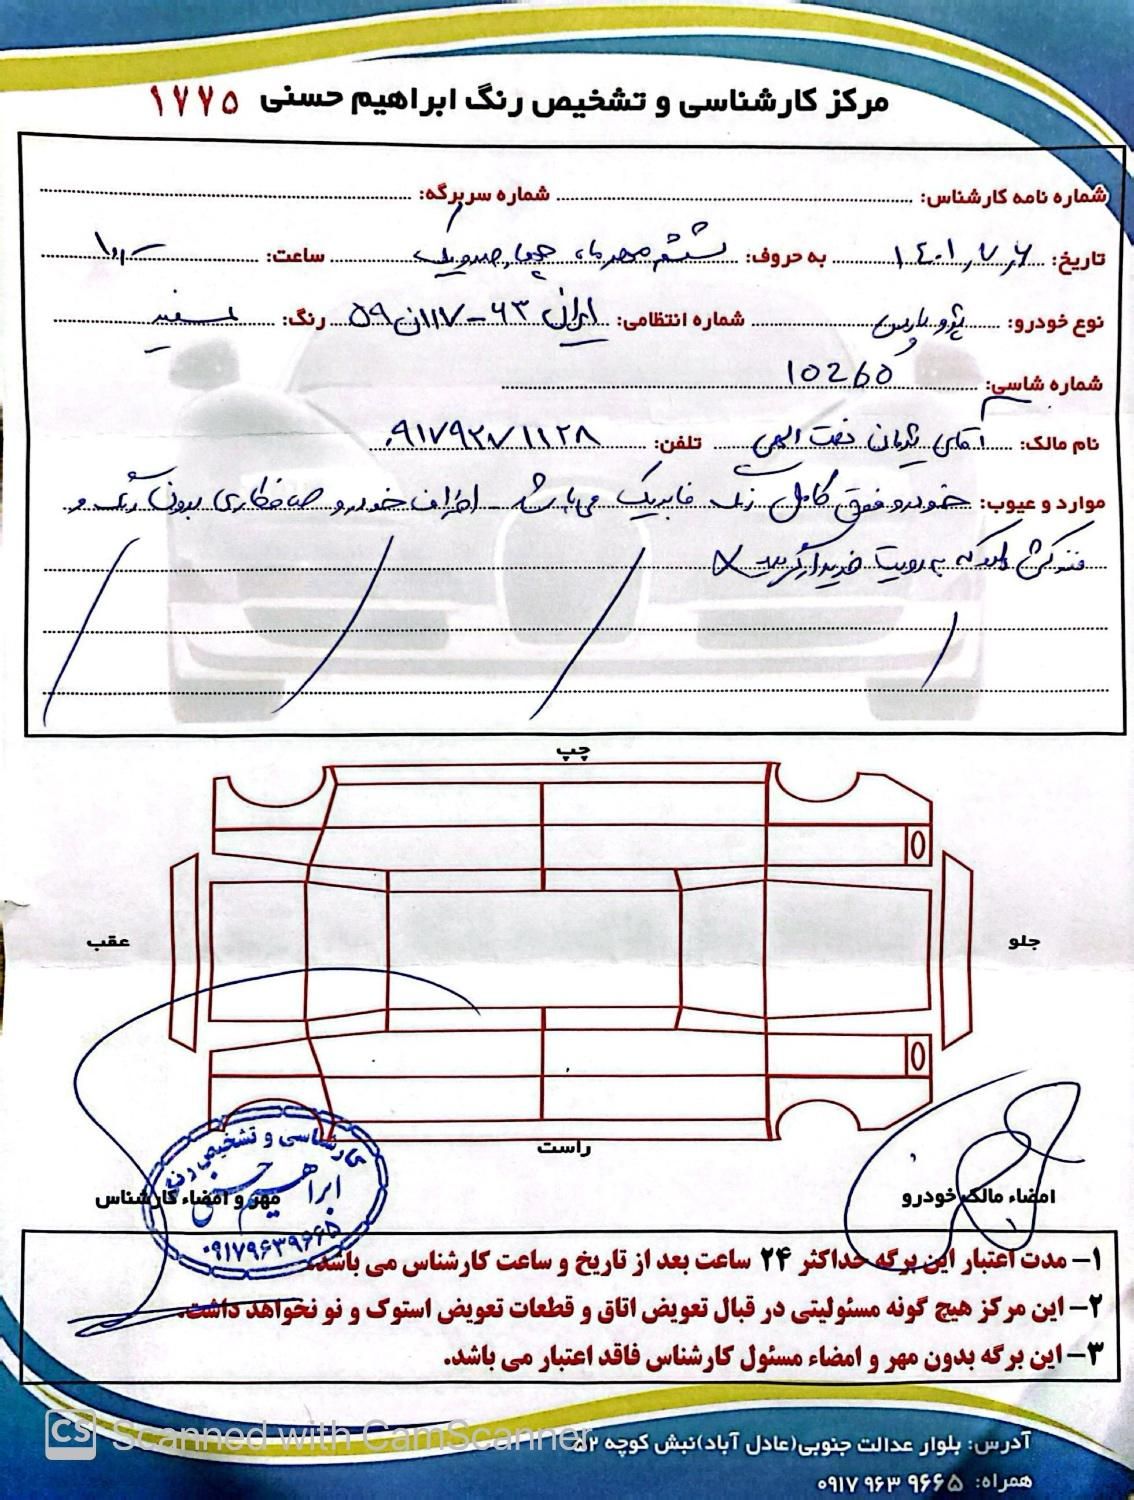 مرکز کارشناسی و تشخیص رنگ ابراهیم حسنی ۱۷۷۵
شماره نامه کارشناس: شماره سربرگه:
تاریخ: ۱۴۰۱٫۷٫۶ به حروف: ششم مهرماه چهارصدویک ساعت:
نوع خودرو: پژو پارس شماره انتظامی: ایران ۶۳-۱۱۷ن۵۹ رنگ: سفید
شماره شاسی: 10260
نام مالک: آقای پژمان نعمت الهی تلفن: ۰۹۱۷۹۲۸۱۱۲۸
موارد و عیوب: خودرو فوق کامل رنگ فابریک می‌باشد - اطراف خودرو صافکاری بدون رنگ و
که به رویت خریدار گردید
چپ
عقب
جلو
راست
کارشناسی و تشخیص رنگ
ابراهیم حسنی
۰۹۱۷۹۶۳۹۶۶۵
مهر و امضاء کارشناس
امضاء مالک خودرو
۱- مدت اعتبار این برگه حداکثر ۲۴ ساعت بعد از تاریخ و ساعت کارشناس می باشد.
۲- این مرکز هیچ گونه مسئولیتی در قبال تعویض اتاق و قطعات تعویض استوک و نو نخواهد داشت.
۳- این برگه بدون مهر و امضاء مسئول کارشناس فاقد اعتبار می باشد.
آدرس: بلوار عدالت جنوبی(عادل آباد)نبش کوچه ۵۲
همراه: ۰۹۱۷ ۹۶۳ ۹۶۶۵
CS Scanned with CamScanner